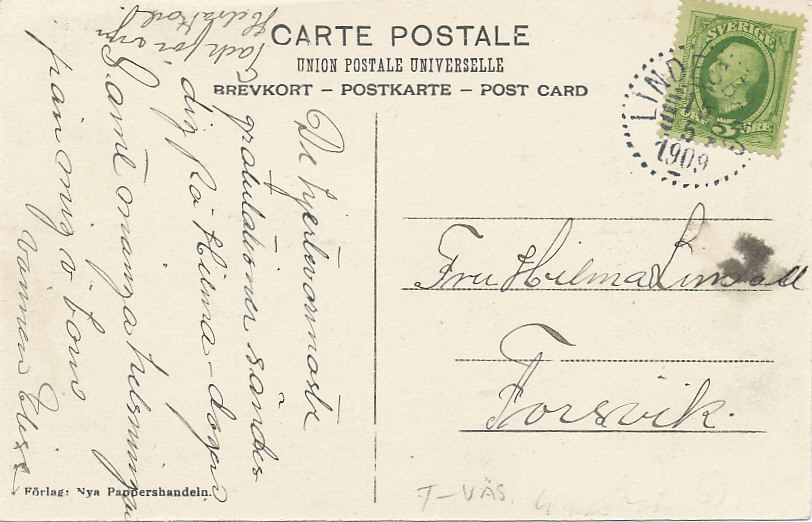 CARTE POSTALE
UNION POSTALE UNIVERSELLE
BREVKORT – POSTKARTE – POST CARD
SVERIGE
5 ÖRE
LIND
15
1909
De hjertevarmaste
gratulationer sändes
dig på Hilma-dagen
Samt många helsningar
från mig o barn
vännen Elise
Tack för
Fru Hilma
Forsvik.
Förlag: Nya Pappershandeln.
T-VÄS.